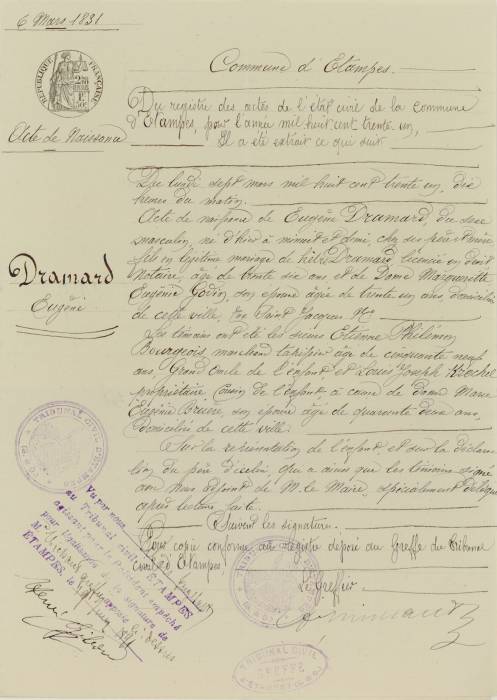 6 Mars 1831
RÉPUBLIQUE FRANÇAISE
Acte de Naissance
Dramard
Eugène
Commune d'Etampes.
Du registre des actes de l'état civil de la commune
d'Etampes, pour l'année mil huit cent trente un,
Il a été extrait ce qui suit
Du lundi sept mars mil huit cent trente un, dix
heures du matin.
Acte de naissance de Eugène Dramard, du sexe
masculin, né d'hier à minuit et demi, chez ses père et mère
fils en légitime mariage de Dramard licencié en droit
Notaire, âgé de trente six ans et de Dame Margueritte
Eugénie Godin son épouse âgée de trente un ans, domiciliés
de cette ville, rue Saint Jacques
Les témoins ont été les sieurs Etienne Philémon
Bourgeois, marchand tapissier âgé de cinquante neuf
ans, Grand Oncle de l'enfant et Louis Joseph
propriétaire cousin de l'enfant à cause de dame Marie
Eugénie son épouse âgé de quarante deux ans,
Domiciliés de cette ville.
Sur la présentation de l'enfant et sur la déclara-
tion du père d'icelui, qui a ainsi que les témoins signé
avec Nous adjoint de M. le Maire, spécialement délégué
après lecture faite.
Suivent les signatures.
Pour copie conforme au registre déposé au Greffe du Tribunal
civil d'Etampes.
Le Greffier
TRIBUNAL CIVIL D'ETAMPES
Vu par nous
au Tribunal civil d'ETAMPES
le Président empêché
pour légalisation de la signature de
M
ETAMPES, le
TRIBUNAL CIVIL
GREFFE